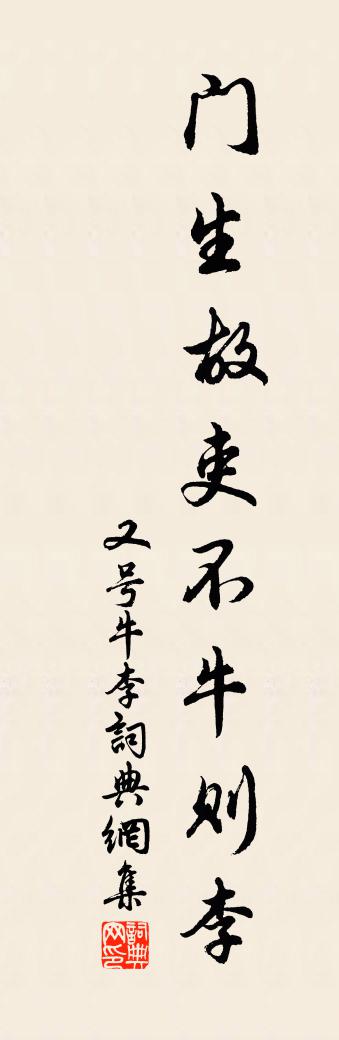 门生故吏不牛则李
又号牛李詞典網集
詞典网印